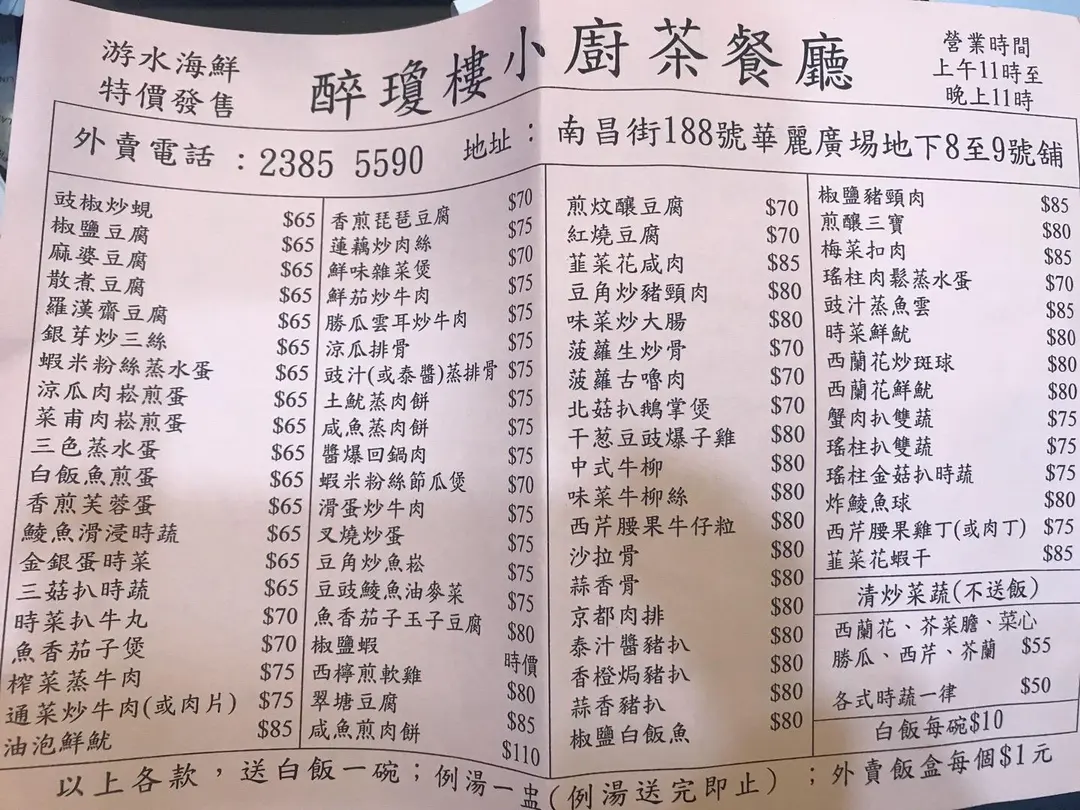 游水海鮮
特價發售
醉瓊樓小廚茶餐廳
營業時間
上午11時至
晚上11時
外賣電話：2385 5590
地址：南昌街188號華麗廣場地下8至9號舖
豉椒炒蜆 $65
椒鹽豆腐 $65
麻婆豆腐 $65
散煮豆腐 $65
羅漢齋豆腐 $65
銀芽炒三絲 $65
蝦米粉絲蒸水蛋 $65
涼瓜肉崧煎蛋 $65
菜甫肉崧煎蛋 $65
三色蒸水蛋 $65
白飯魚煎蛋 $65
香煎芙蓉蛋 $65
鯪魚滑浸時蔬 $65
金銀蛋時菜 $65
三菇扒時蔬 $65
時菜扒牛丸 $70
魚香茄子煲 $70
榨菜蒸牛肉 $75
通菜炒牛肉(或肉片) $75
油泡鮮魷 $85
香煎琵琶豆腐 $70
蓮藕炒肉絲 $75
鮮味雜菜煲 $70
鮮茄炒牛肉 $75
勝瓜雲耳炒牛肉 $75
涼瓜排骨 $75
豉汁(或泰醬)蒸排骨 $75
土魷蒸肉餅 $75
咸魚蒸肉餅 $75
醬爆回鍋肉 $75
蝦米粉絲節瓜煲 $70
滑蛋炒牛肉 $75
叉燒炒蛋 $75
豆角炒魚崧 $75
豆豉鯪魚油麥菜 $75
魚香茄子玉子豆腐 $80
椒鹽蝦 時價
西檸煎軟雞 $80
翠塘豆腐 $85
咸魚煎肉餅 $110
煎炆釀豆腐 $70
紅燒豆腐 $70
韮菜花咸肉 $85
豆角炒豬頸肉 $80
味菜炒大腸 $80
菠蘿生炒骨 $70
菠蘿古嚕肉 $70
北菇扒鵝掌煲 $70
干葱豆豉爆子雞 $80
中式牛柳 $80
味菜牛柳絲 $80
西芹腰果牛仔粒 $80
沙拉骨 $80
蒜香骨 $80
京都肉排 $80
泰汁醬豬扒 $80
香橙焗豬扒 $80
蒜香豬扒 $80
椒鹽白飯魚 $80
椒鹽豬頸肉 $85
煎釀三寶 $80
梅菜扣肉 $85
瑤柱肉鬆蒸水蛋 $70
豉汁蒸魚雲 $85
時菜鮮魷 $80
西蘭花炒斑球 $80
西蘭花鮮魷 $80
蟹肉扒雙蔬 $75
瑤柱扒雙蔬 $75
瑤柱金菇扒時蔬 $75
炸鯪魚球 $80
西芹腰果雞丁(或肉丁) $75
韮菜花蝦干 $85
清炒菜蔬(不送飯)
西蘭花、芥菜膽、菜心
勝瓜、西芹、芥蘭 $55
各式時蔬一律 $50
白飯每碗$10
以上各款，送白飯一碗；例湯一盅(例湯送完即止)；外賣飯盒每個$1元